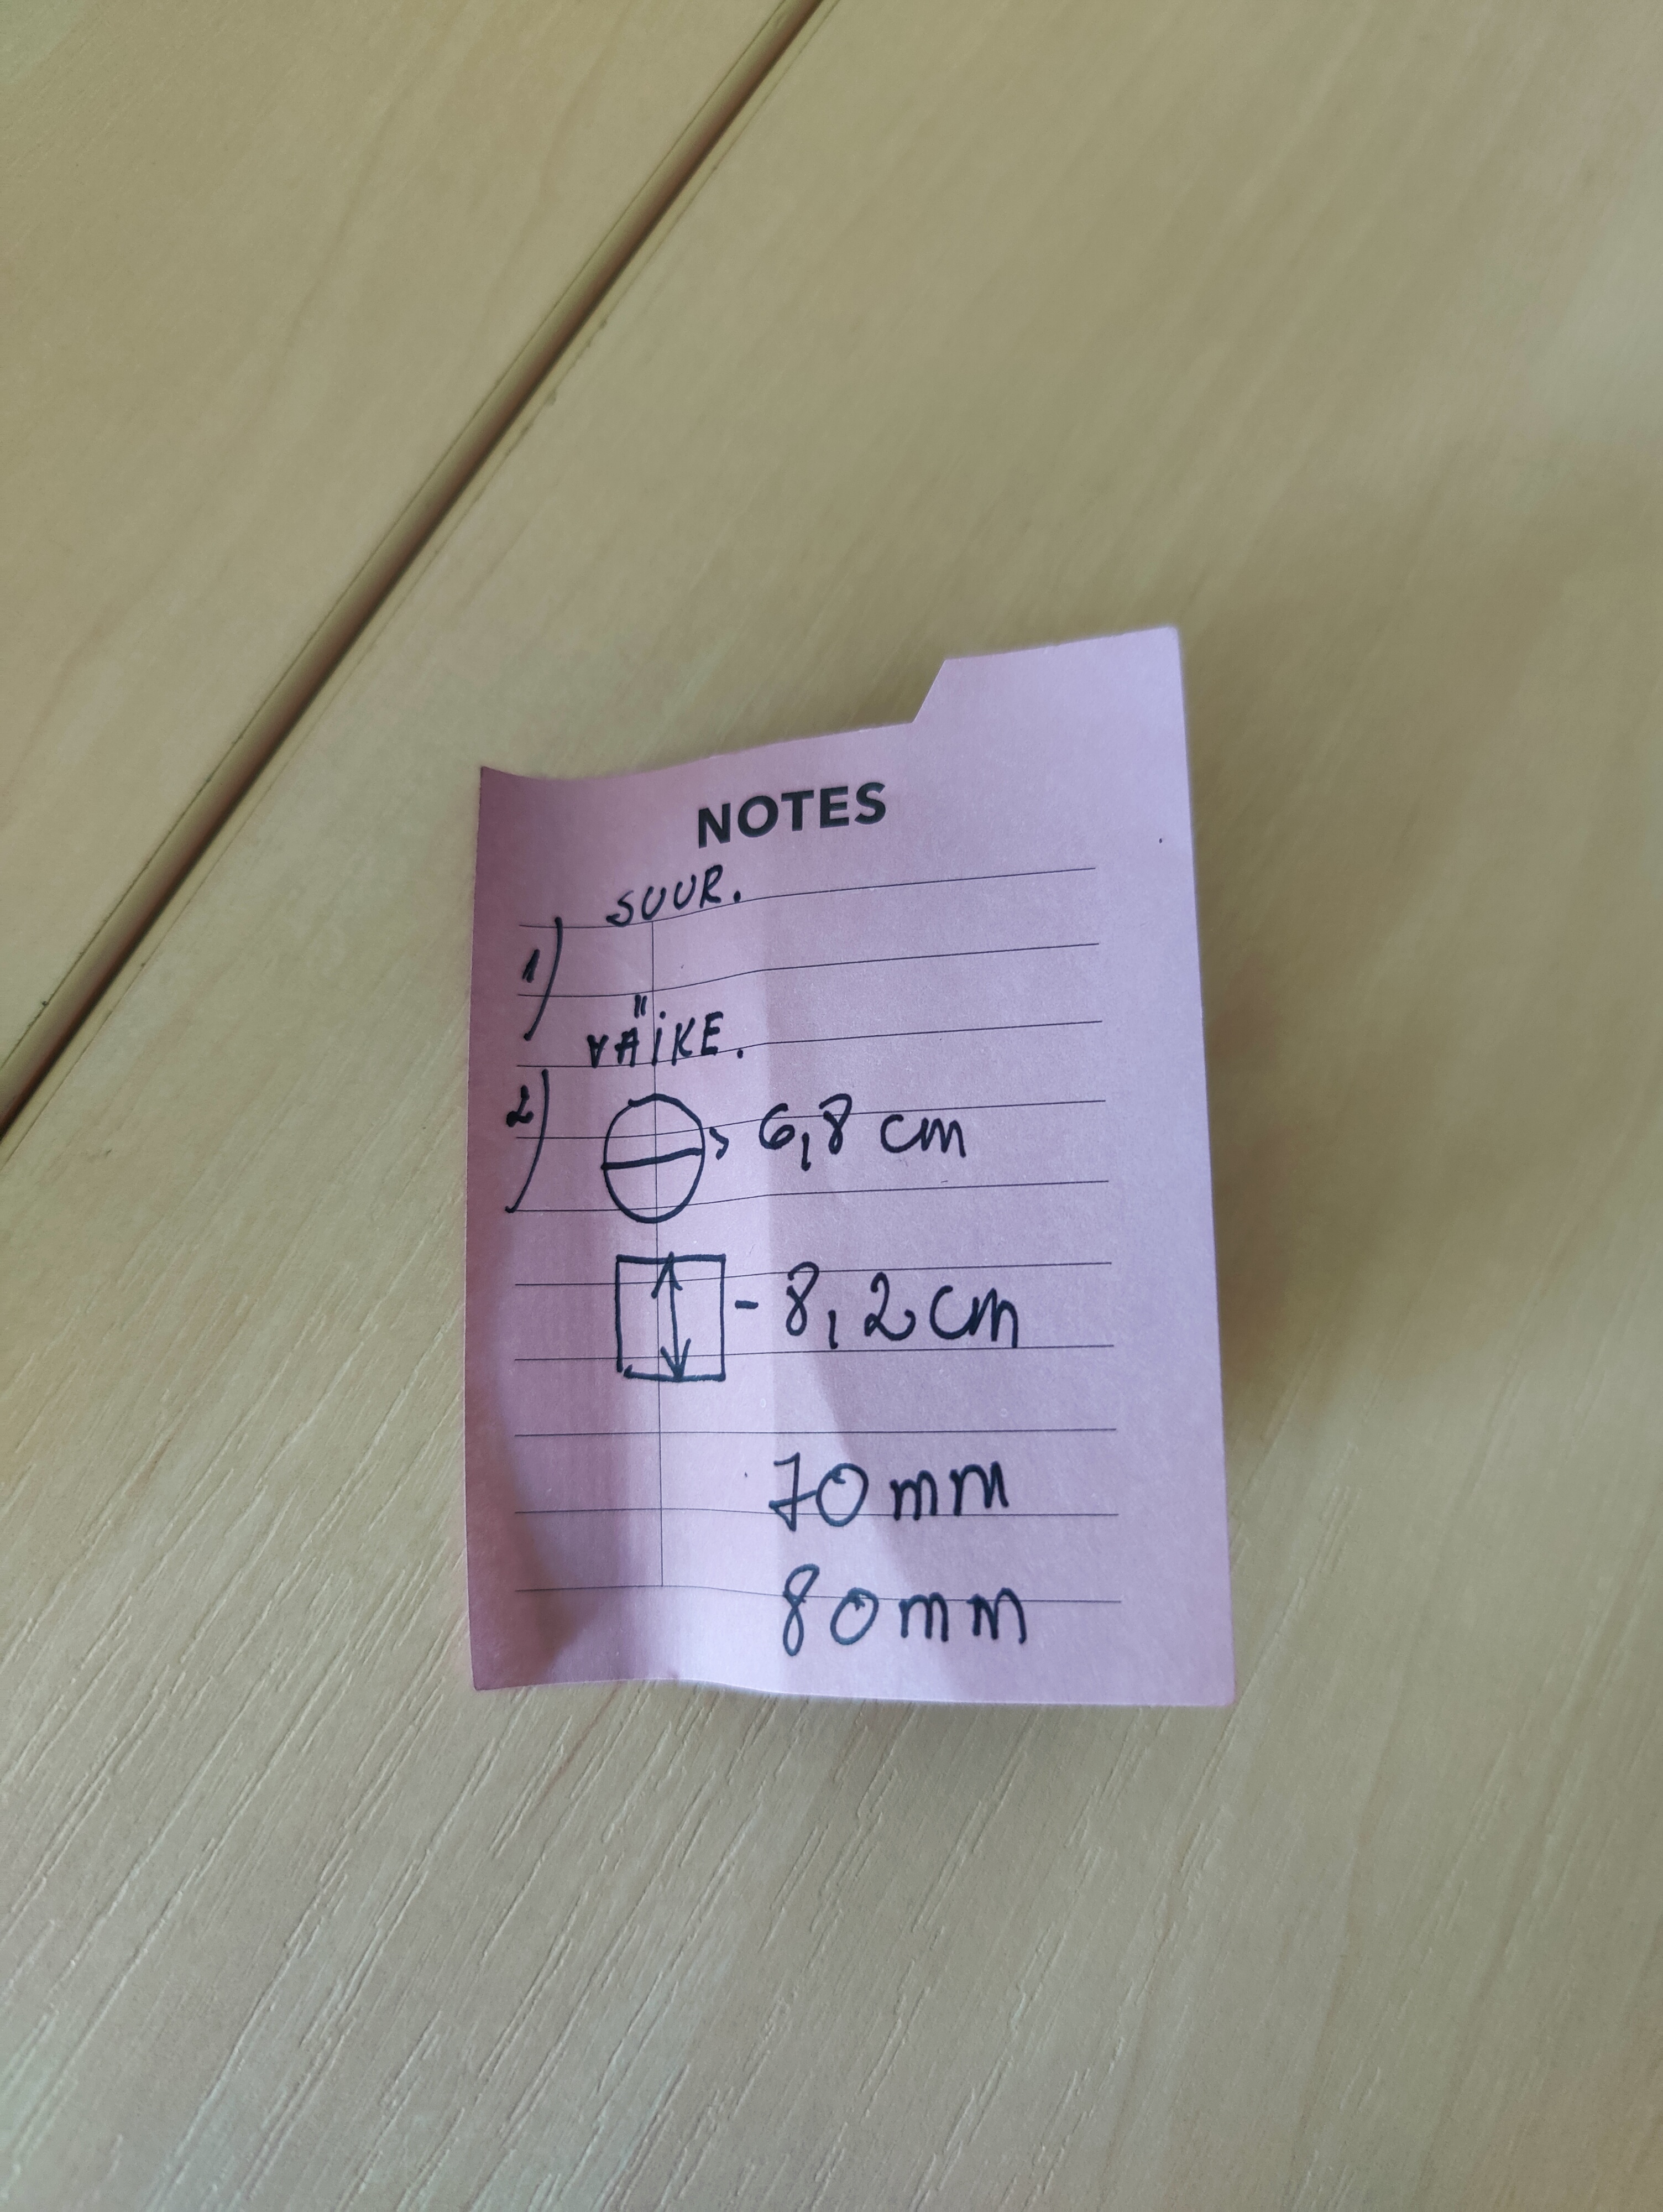 NOTES
SUUR.
1)
VÄIKE.
2)
6,8 cm
- 8,2 cm
70 mm
80 mm